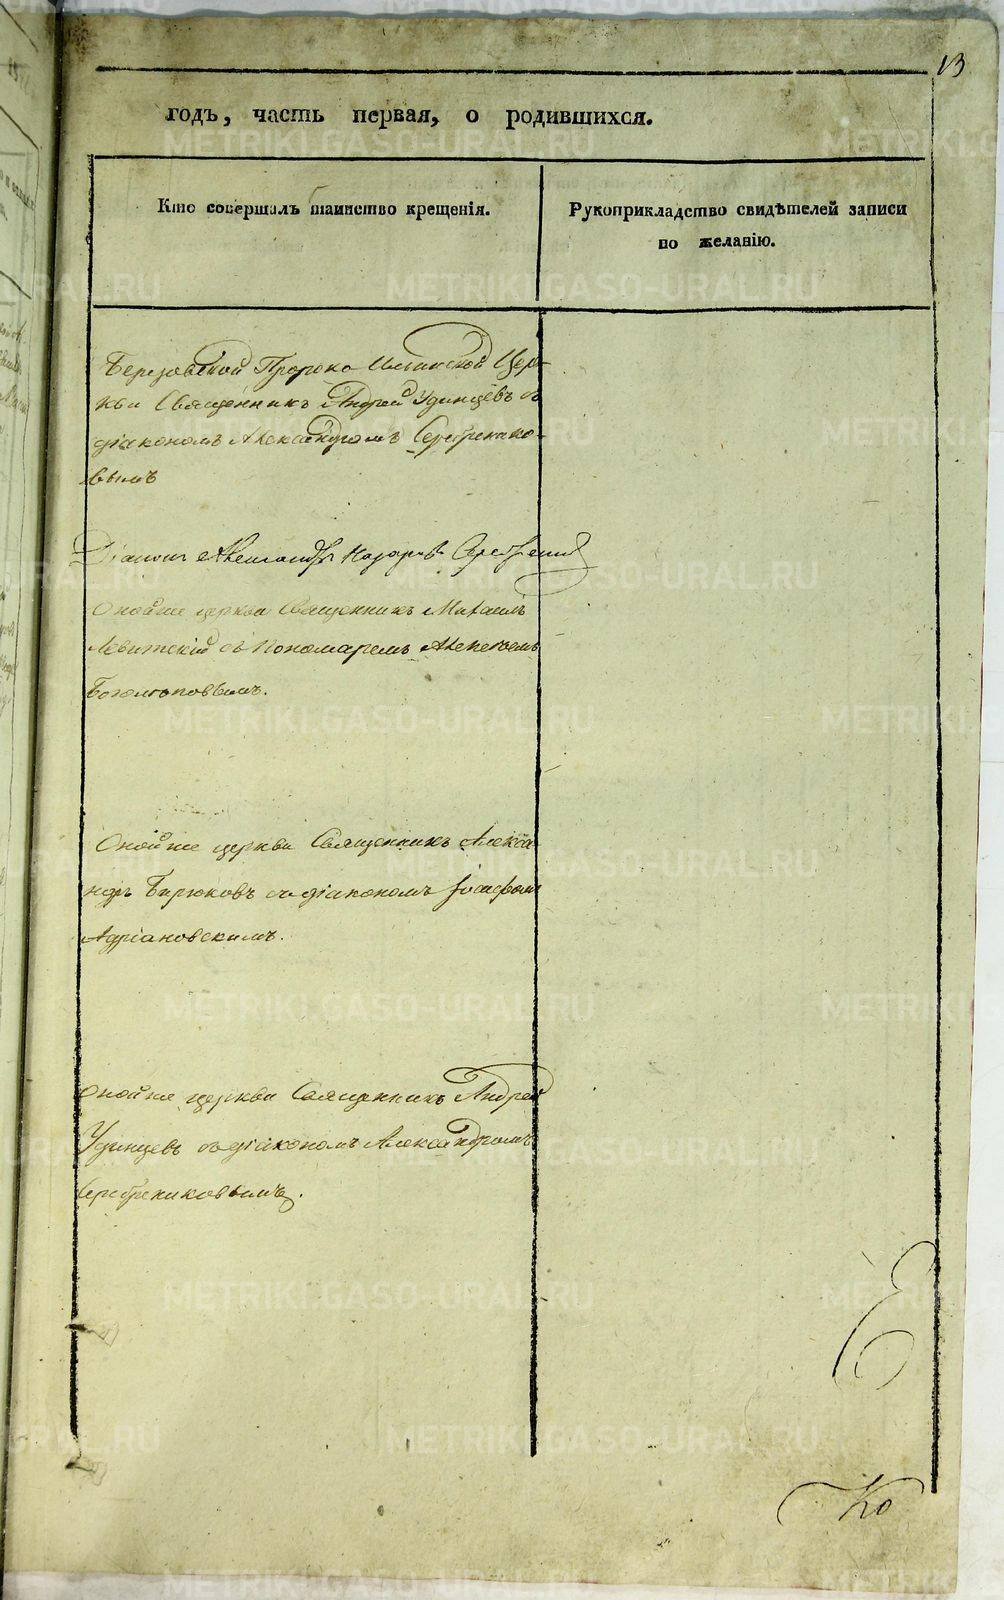 13
годъ, часть первая, о родившихся.
Кто совершалъ таинство крещенія.
Рукоприкладство свидѣтелей записи
по желанію.
Березовской Пророко Ильинской Цер-
кви Священникъ Андрей Удинцевъ съ
діакономъ Александромъ Серебренико-
вымъ
Діаконъ Александръ Назаровъ
Онойже церкви Священникъ Михаилъ
Левитскій съ Пономаремъ Алексѣемъ
Боголюповымъ.
Онойже церкви Священникъ Алекса-
ндръ Бирюковъ съ діакономъ Іосифомъ
Адріановскимъ.
Онойже церкви Священникъ Андрей
Удинцевъ съ діакономъ Александромъ
Серебрениковымъ.
Ко
METRIKI.GASO-URAL.RU